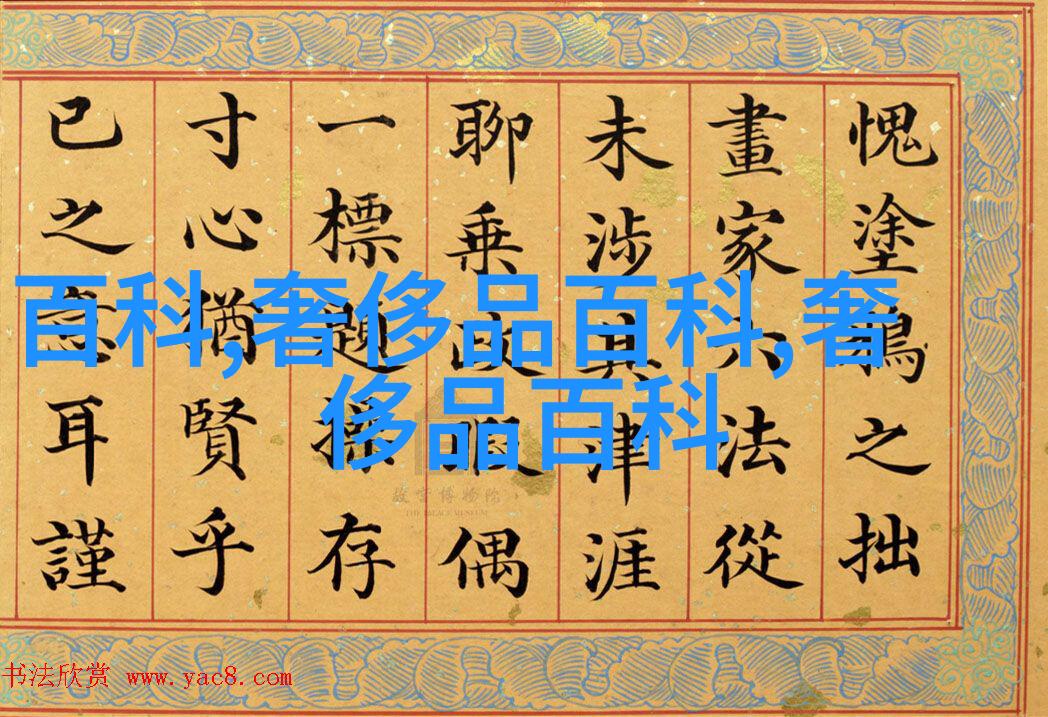 愧塗鴉之拙
畫家六法從
未涉其津涯
聊乗政暇偶
一標題操存
寸心猶賢乎
已之意耳謹
百科,奢侈品百科,奢
侈品百科
故宫博物院
THE PALACE MUSEUM
书法欣赏 www.yac8.com